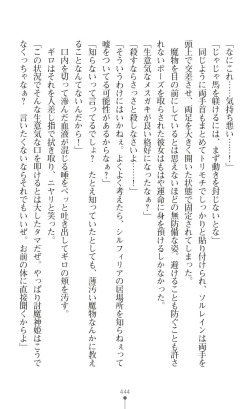 「なにこれ……気持ち悪い……！」
「じゃじゃ馬を躾けるには、まず動きを封じないとな」
　同じように両手首もまとめてトリモチでしっかりと貼り付けられ、ソルレインは両手を
頭上で交差させ、両足を大きく開いた状態で固定されてしまった。
　魔物を目の前にしているとは思えないほどの無防備な姿。避けることも防ぐことも許さ
れないポーズを取らされた彼女はもはや運命に身を預けるしかなかった。
「生意気なメスガキが良い格好になったなぁ」
「殺すならさっさと殺しなさいよ……！」
「そういうわけにはいかねぇ。よくよく考えたら、シルフィリアの居場所を知らないって
嘘をついてる可能性があるからなぁ？」
「知らないって言ってるでしょ？　たとえ知っていたとしても、薄汚い魔物なんかに教え
　口内を切って滲んだ血液が混じる唾をペっと吐き出してギロの頬を汚す。
　ギロはそれを人差し指で拭き取り、ニヤリと笑った。
「この状況でそんな生意気な口を叩けるとは大したタマだぜ。やっぱり討魔神姫はこうで
なくっちゃなぁ？　言いたくないならそれでもいいぜ。お前の体に直接聞くからよ」
444